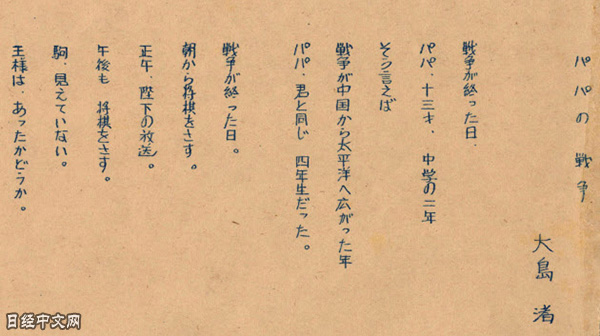 パパの戦争
大島 渚
戦争が終った日、
パパ、十三才、中学の二年
そう言えば
戦争が中国から太平洋へ広がった年
パパ、君と同じ 四年生だった。
戦争が終った日。
朝から将棋をさす。
正午、陛下の放送。
午後も 将棋をさす。
駒、見えていない。
王様は、あったかどうか。
日经中文网